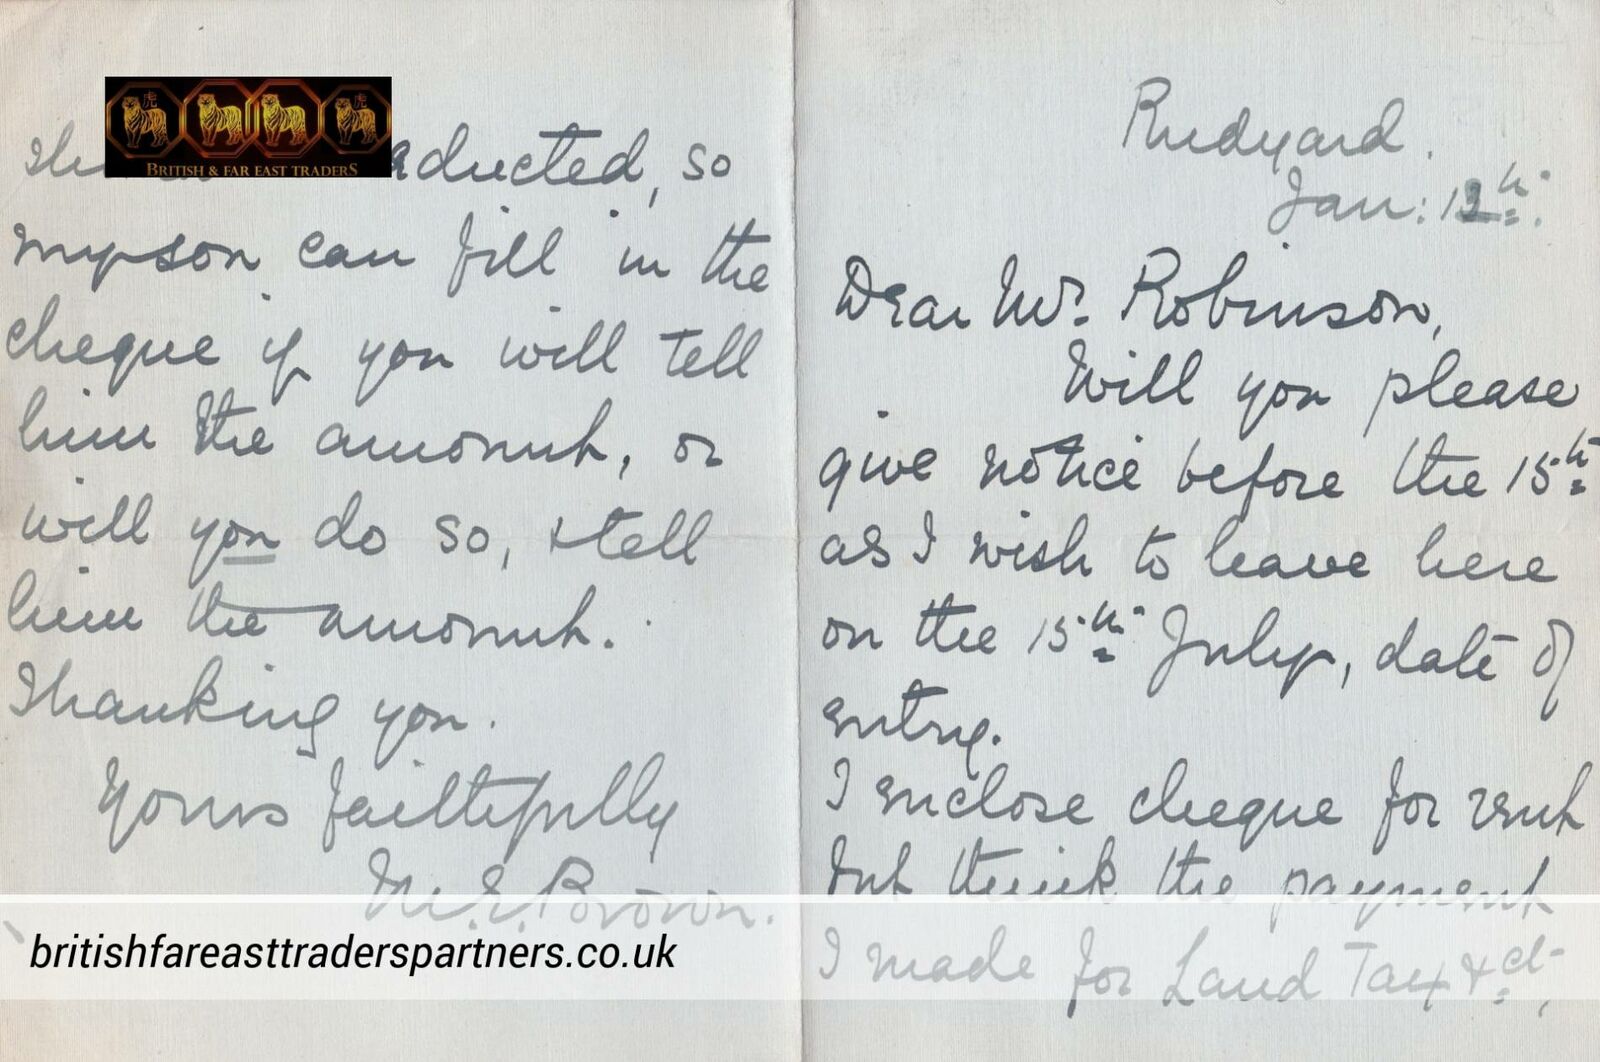 Rudyard.
Jan:
Dear Mr. Robinson,
Will you please
give notice before the 15th
as I wish to leave here
on the 15th July, date of
entry.
I enclose cheque for rent
but think the payment
I made for Land Tax & ct,
BRITISH & FAR EAST TRADERS
ducted, so
mpson can fill in the
cheque if you will tell
him the amount, or
will you do so, & tell
him the amount.
Thanking you.
Yours faithfully
M.E. Brown.
britishfareasttraderspartners.co.uk